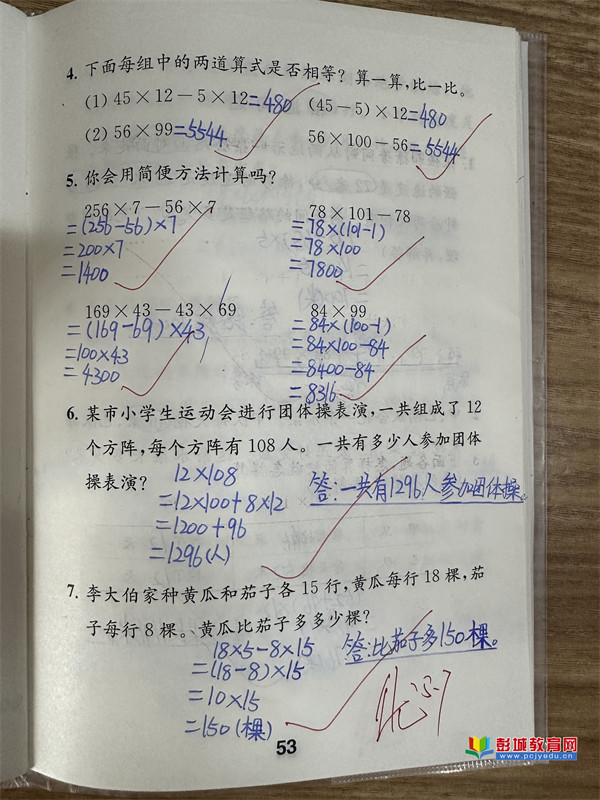 4. 下面每组中的两道算式是否相等？算一算，比一比。
(1) 45×12－5×12=480 (45－5)×12=480
(2) 56×99=5544 56×100－56=5544
5. 你会用简便方法计算吗？
256×7－56×7 78×101－78
=(256-56)×7 =78×(101-1)
=200×7 =78×100
=1400 =7800
169×43－43×69 84×99
=(169-69)×43 =84×(100-1)
=100×43 =84×100-84
=4300 =8400-84
=8316
6. 某市小学生运动会进行团体操表演，一共组成了 12
个方阵，每个方阵有 108 人。一共有多少人参加团体
操表演？
12×108 答：一共有1296人参加团体操。
=12×100+8×12
=1200+96
=1296(人)
7. 李大伯家种黄瓜和茄子各 15 行，黄瓜每行 18 棵，茄
子每行 8 棵。黄瓜比茄子多多少棵？
18×5-8×15 答：比茄子多150棵。
=(18-8)×15
=10×15
=150(棵)
5.7
53
彭城教育网
www.pcjyedu.cn